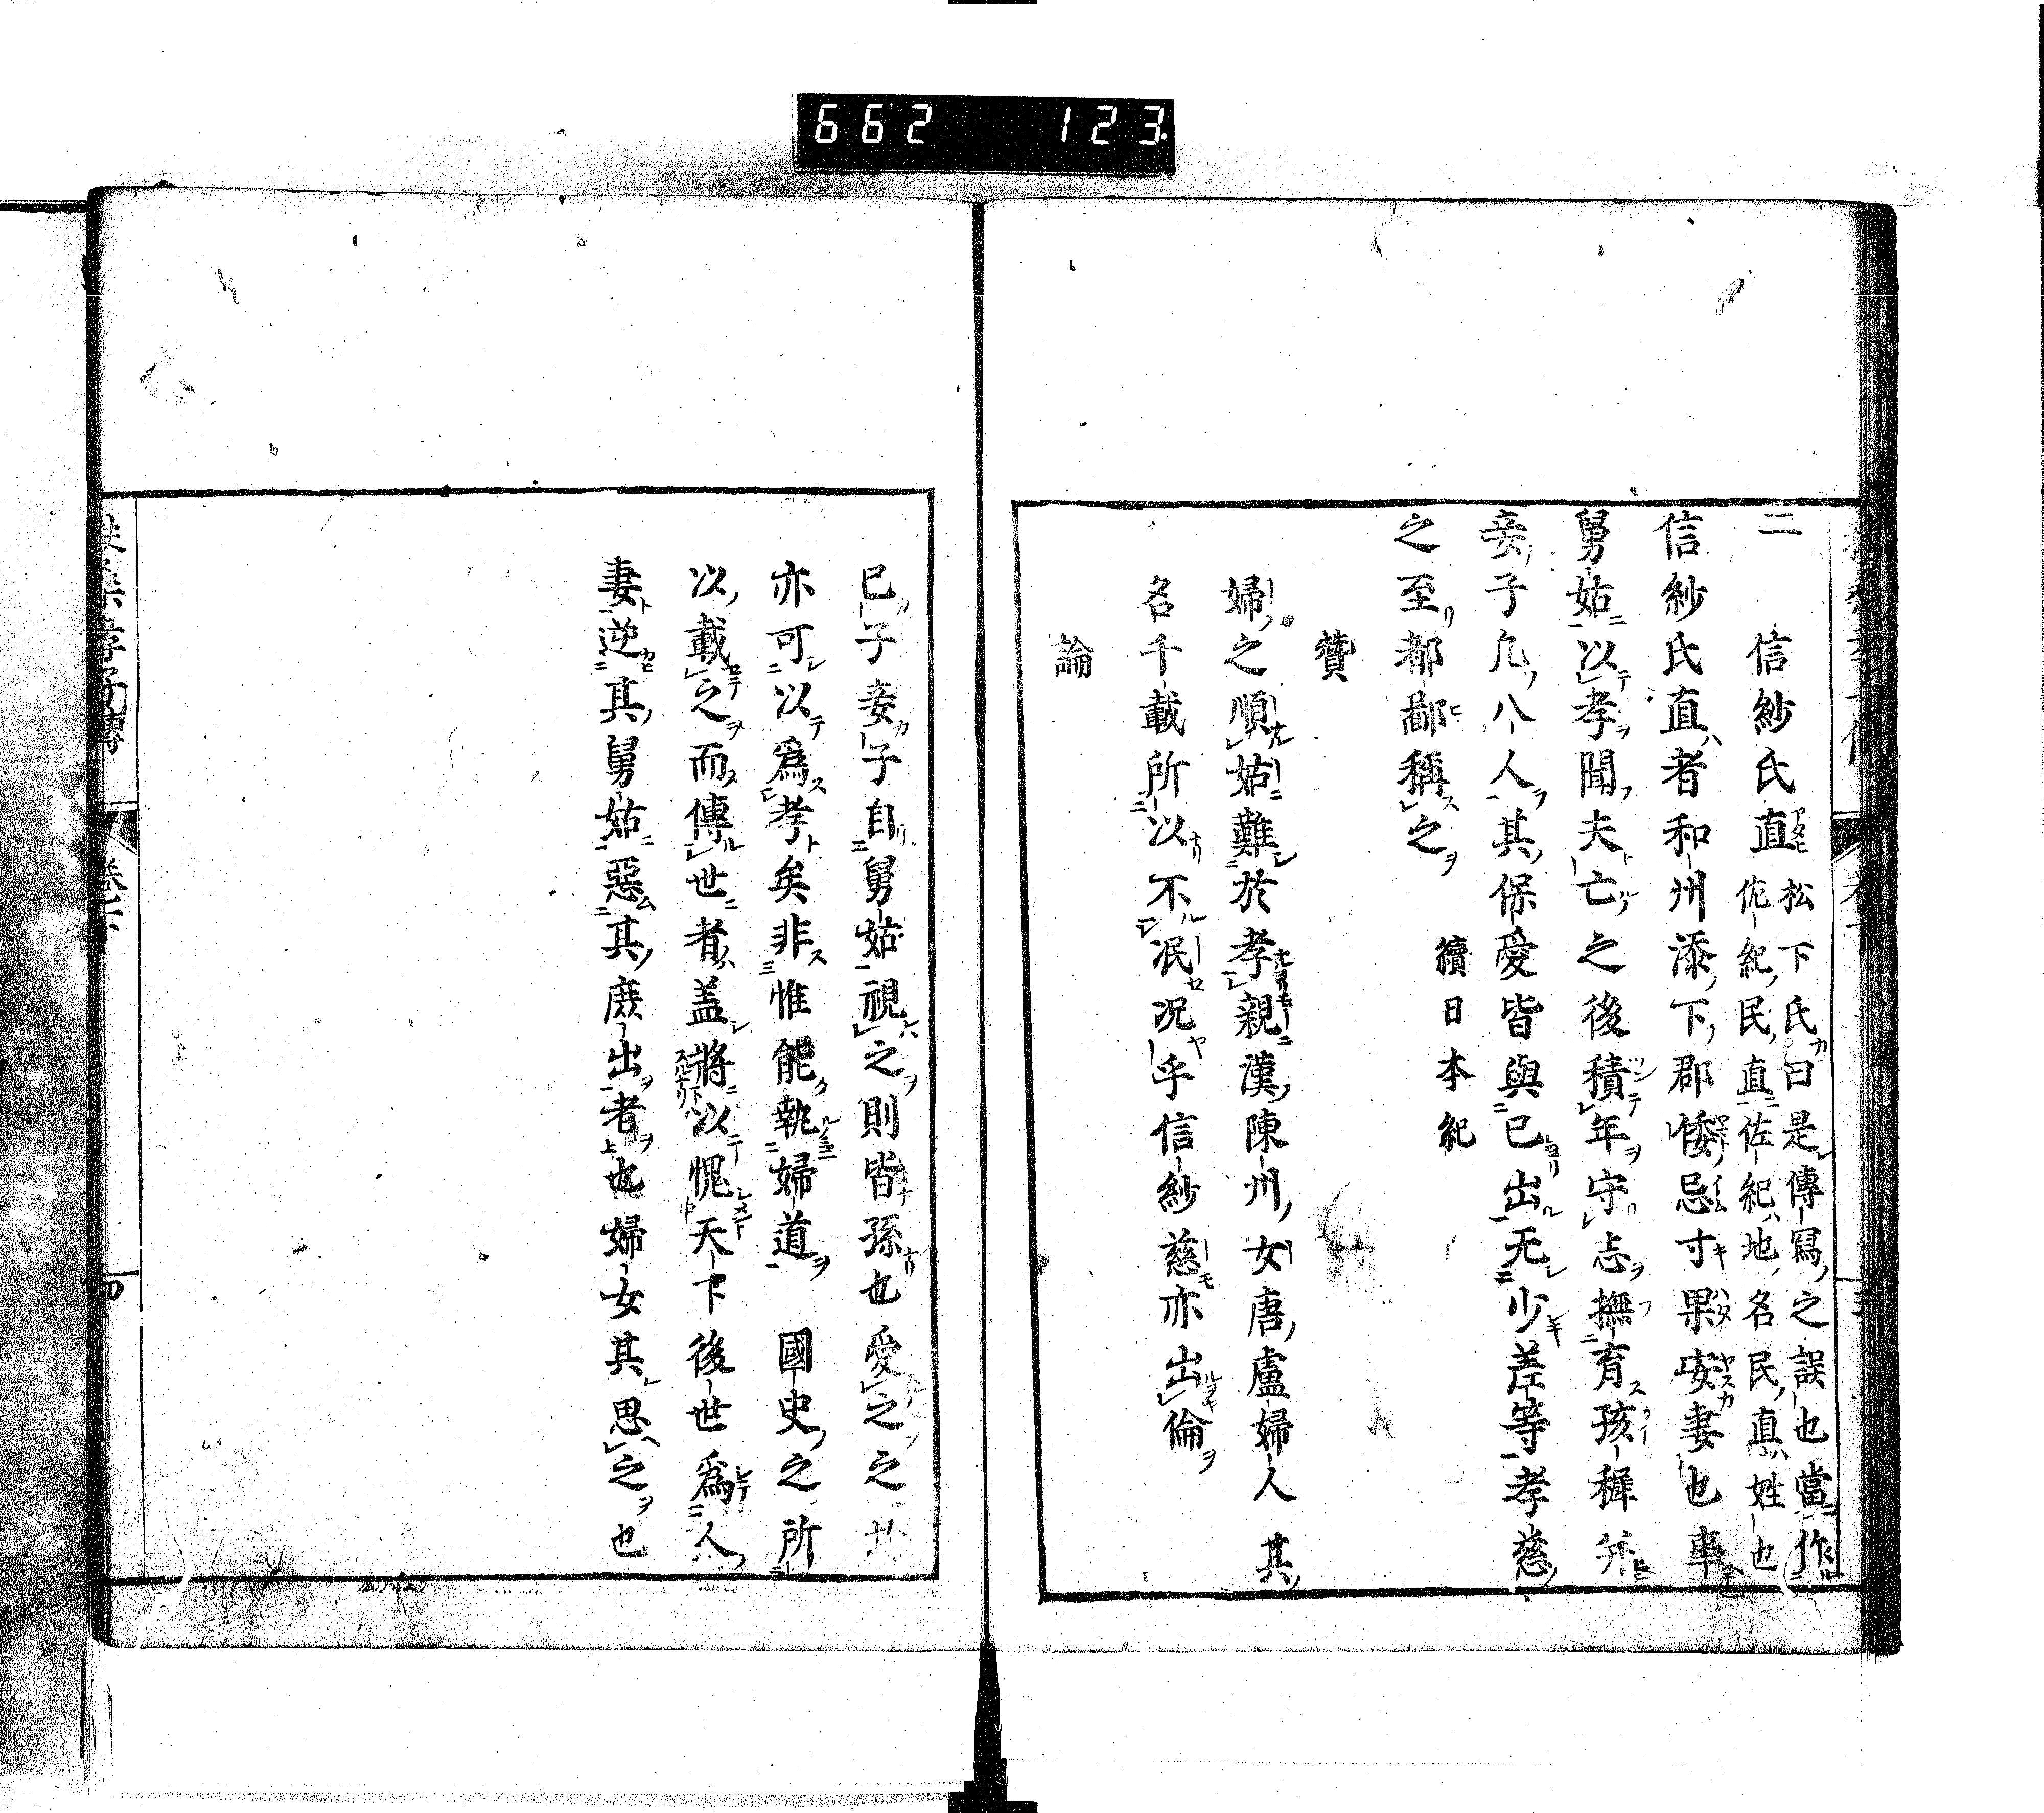 662 123
二
信紗氏直 松下氏曰是傳寫之誤也當作
佐紀民直佐紀地名民直姓也
信紗氏直者和州添下郡倭忌寸果安妻也事
舅姑以孝聞夫亡之後積年守志撫育孩穉并
妾子凡八人其保愛皆與己出无少差等孝慈
之至都鄙稱之 續日本紀
贊
婦之順姑難於孝親漢陳州女唐盧婦人其
名千載所以不泯況乎信紗慈亦出倫
論
己子妾子自舅姑視之則皆孫也愛之之
亦可以為孝矣非惟能執婦道 國史之所
以載之而傳世者盖將以愧天下後世為人
妻逆其舅姑惡其庶出者也婦女其思之也
孝子傳 卷下 四